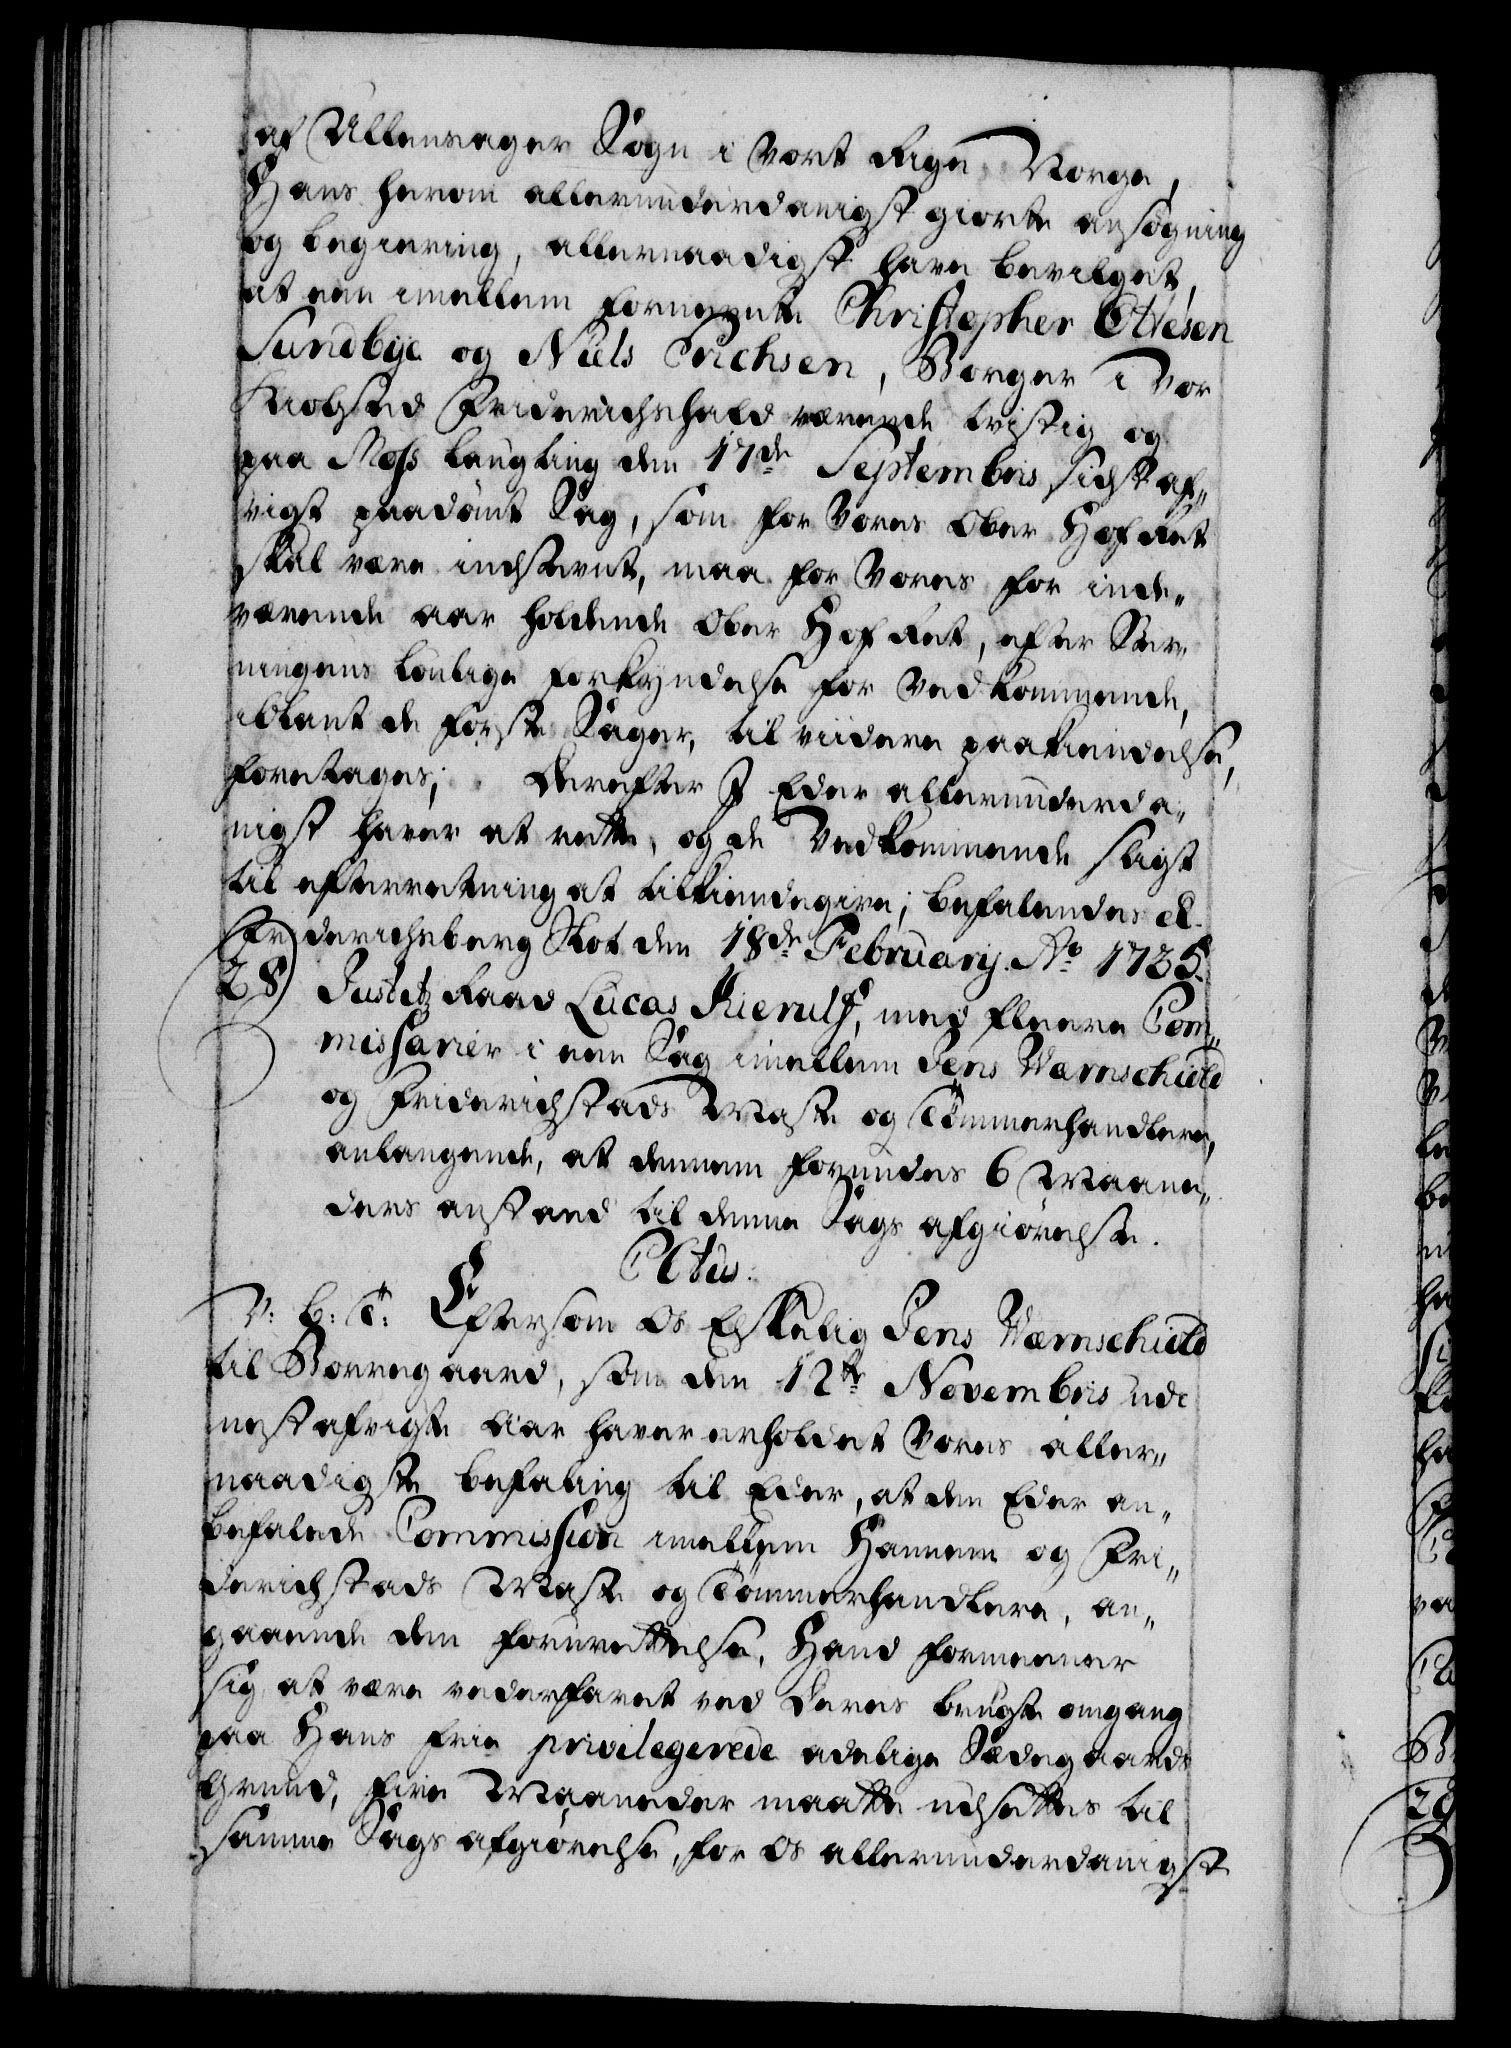 af Ullensager Sogn i Vort Rige Norge,
Hans herom allerunderdanigst giorte ansøgning
og begiering, allernaadigst have bevilget,
at een imellem fornevnte Christopher Olvesen
Sundbye og Niels Erichsen, Borger i Vor
Kiøbsted Friderichshald værende tvistig og
paa Moss laugting den 17de Septembris sidst af„
vigt paadømt Sag, som for Vores Ober Hof Ret
skal være indstevnt, maa for Vores for inde„
værende aar holdende Ober Hof Ret, efter Stev„
ningens lovlige forkyndelse for Vedkommende,
iblant de første Sager, til viidere paakiendelse,
foretages; Derefter I Eder allerunderda„
nigst haver at rette, og de Vedkommende sligt
til efterretning at tilkiendegive; befalendes etc.
Friderichsberg Slot den 18de February Ao 1735.
28) Justitz Raad Lucas Kierulf, med fleere Com„
missarier i een Sag imellem Jens Wernschiold
og Friderichstads Mast og Tømmerhandlere,
anlangende, at dennem forundes 6 Maane„
ders anstand til denne Sags afgiørelse.
C Vtus.
V: G: T: Eftersom Os Elskelig Jens Wernschiold
til Borregaard, som den 12te Novembris udi
nestafvigte Aar haver erholdet Vores aller„
naadigste befaling til Eder, at den Eder an„
befalede Commission imellem Hannem og Fri„
derichstads Mast og Tømmerhandlere, an„
gaaende den forurettelse, Hand formeener
sig at være vederfaret ved Deres brugte omgang
paa Hans frie privilegerede adelige Sædegaards
Grund, fire Maaneder maatte udsettes til
samme Sags afgiørelse, for Os allerunderdanigst